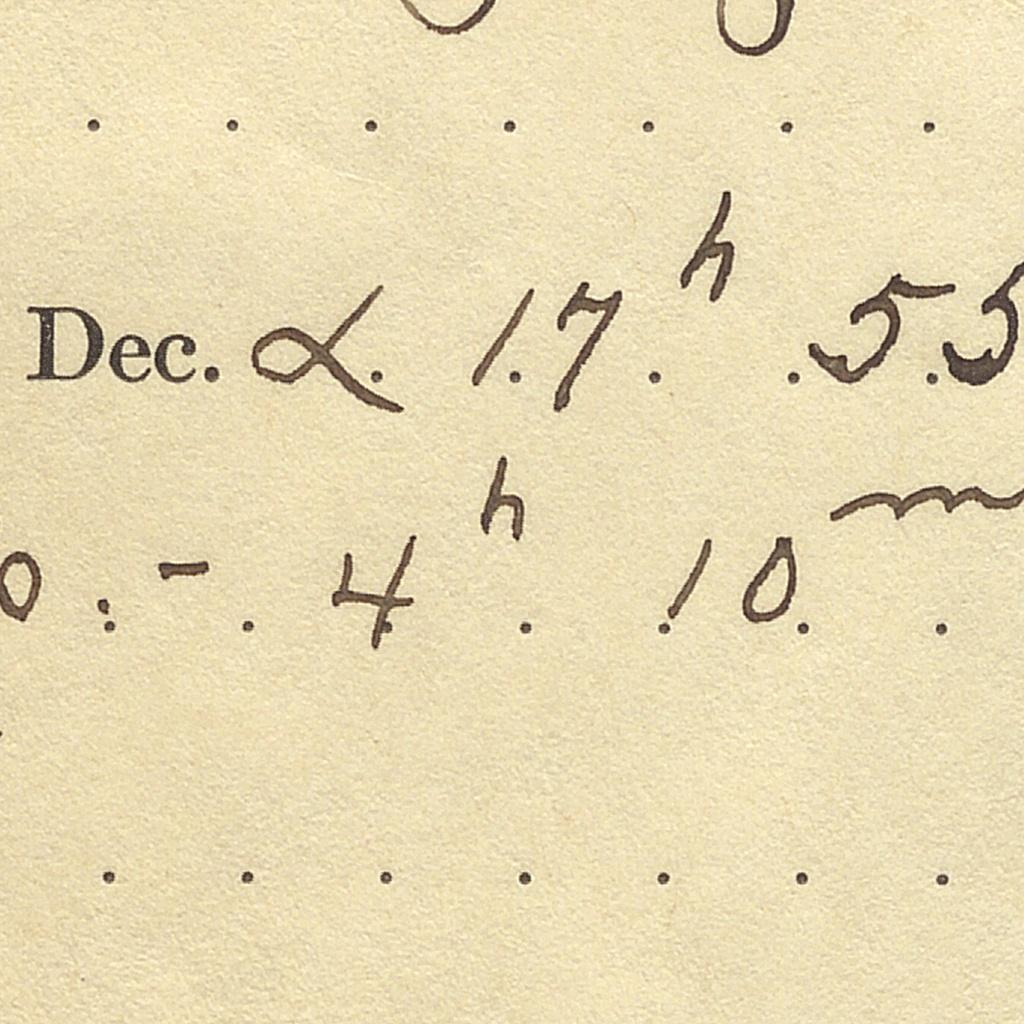 Dec. α 17ʰ 55
0 : - 4ʰ 10ᵐ